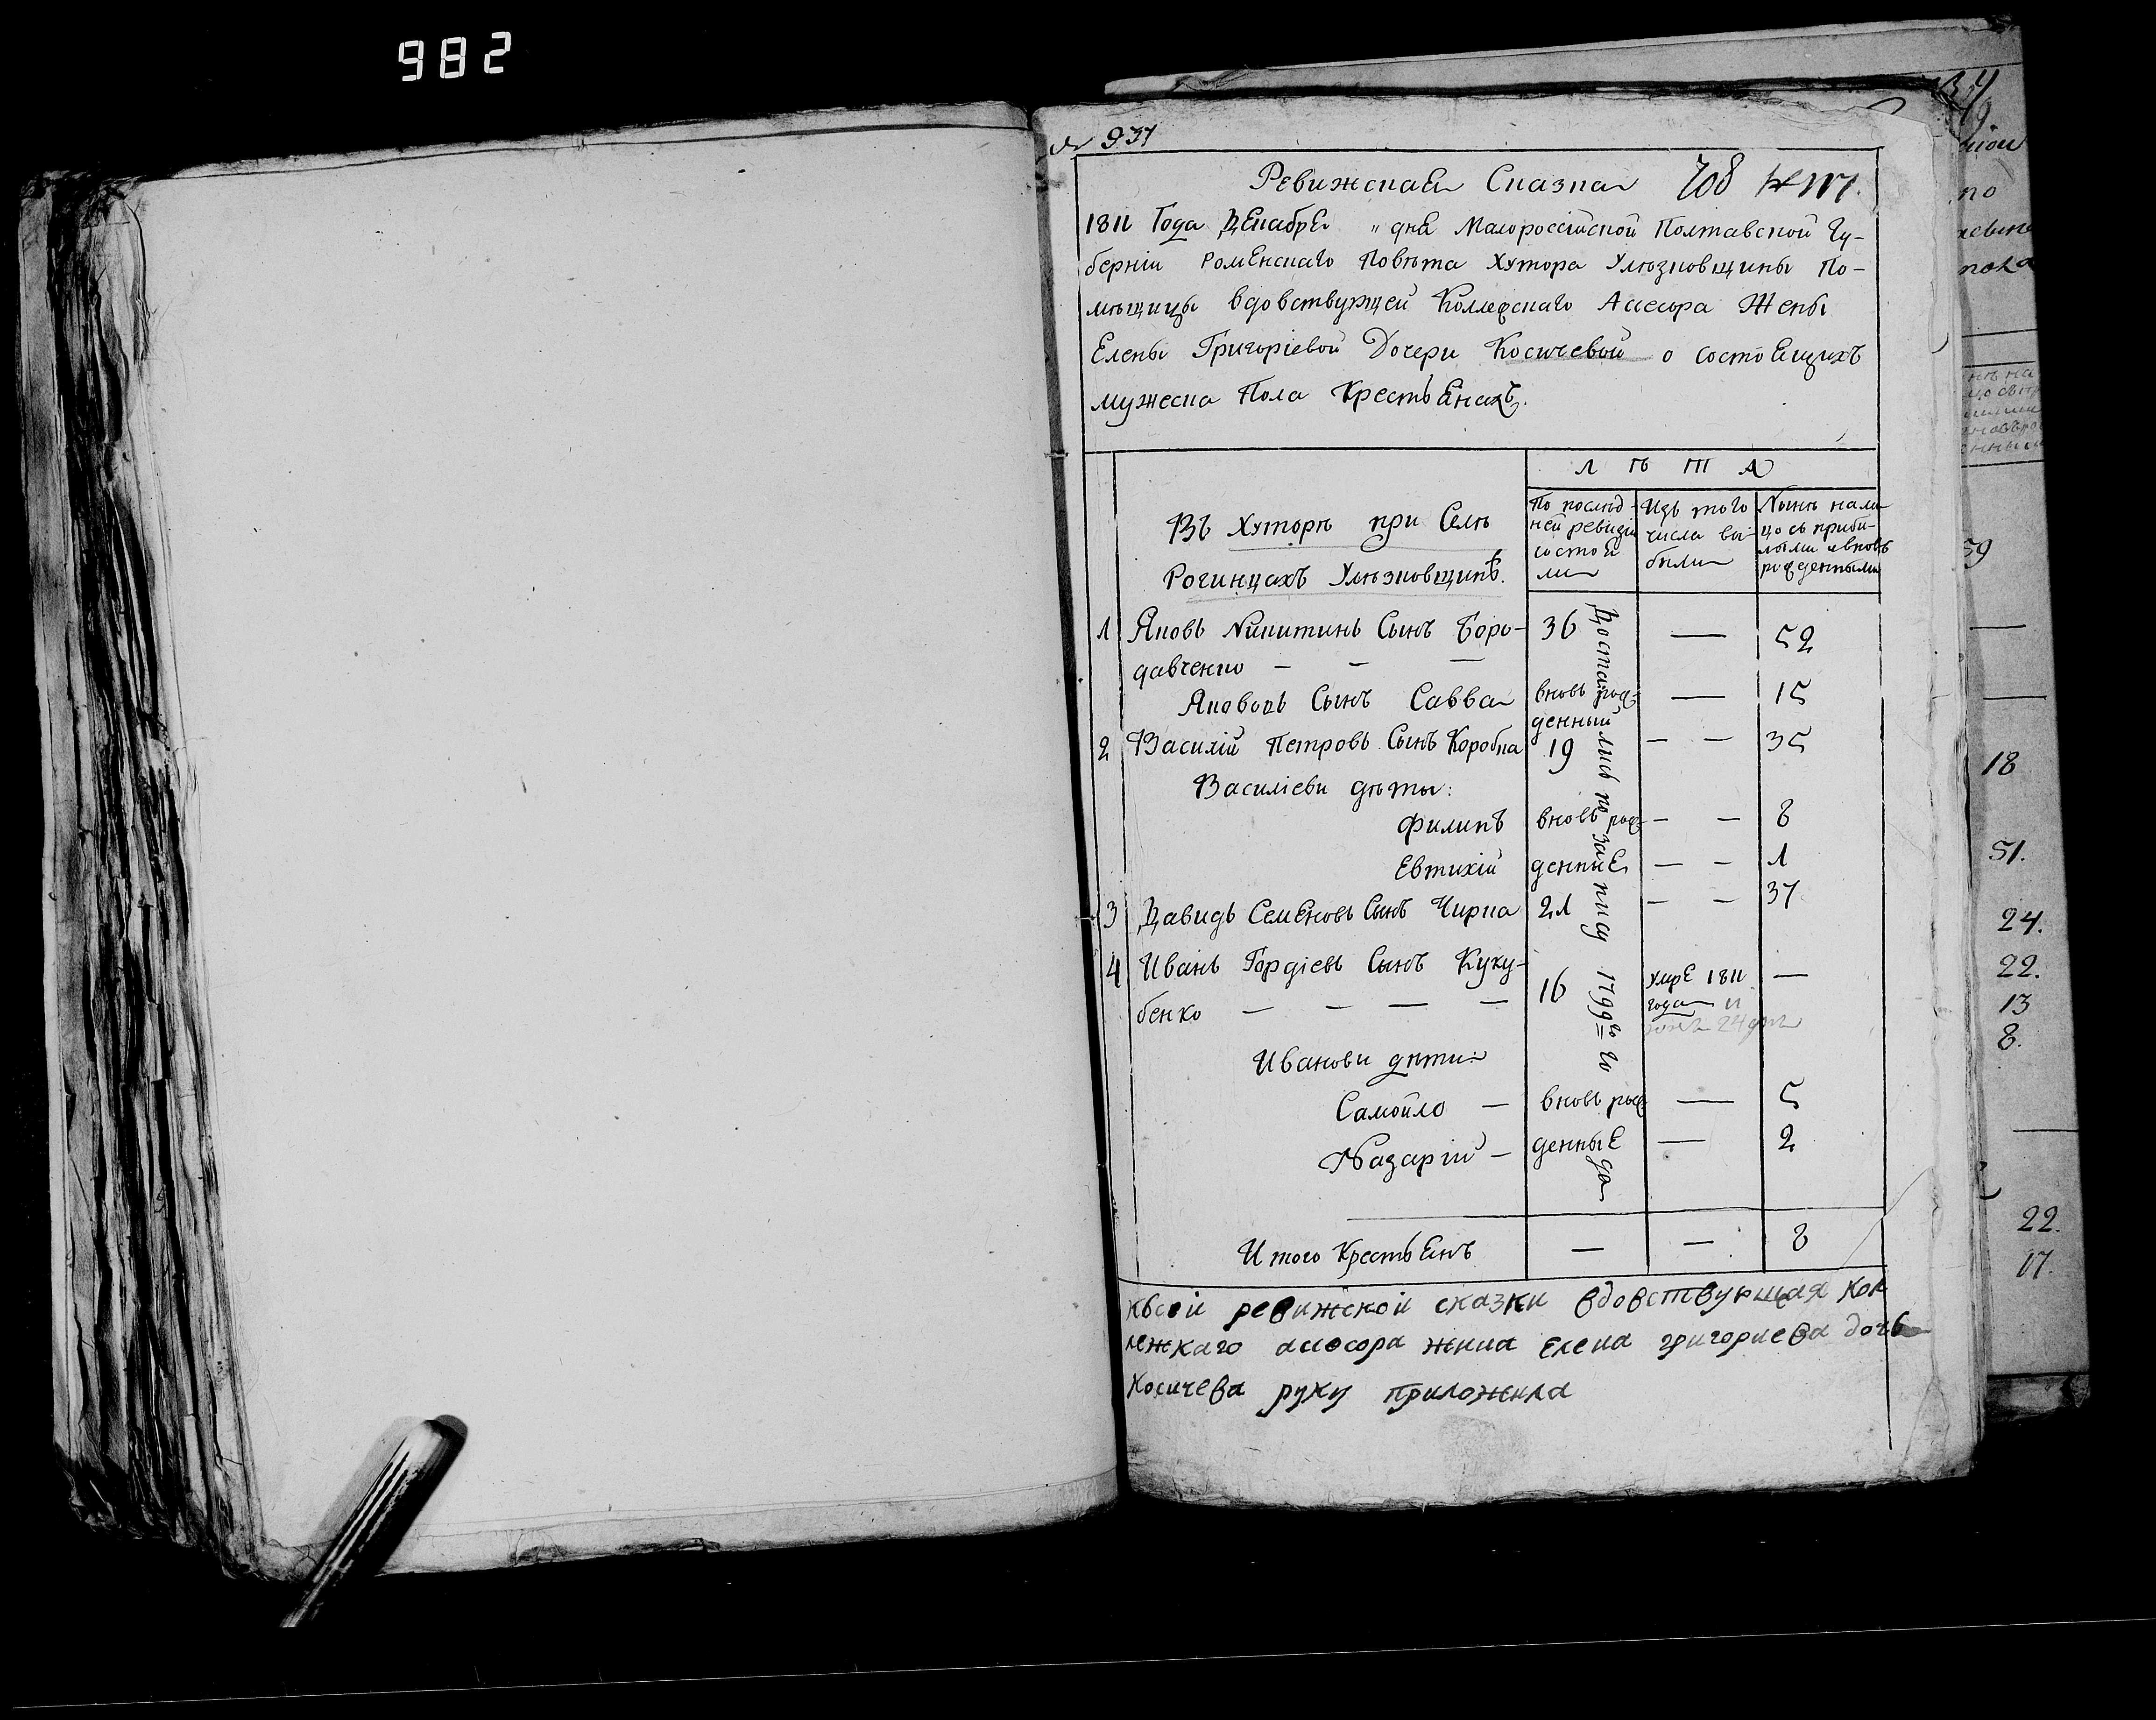 982
№ 937
Ревижская Сказка 708
1811 Года Декабря " дня Малороссійской Полтавской Гу-
берніи Роменскаго Повѣта Хутора Улюзковщины По-
мѣщицы вдовствующей Коллежскаго Асесора Жены
Елены Григоріевой Дочери Косичевой о состоящихъ
мужеска Пола Крестьянахъ.
ЛѢТА
Въ Хуторѣ при Селѣ
Рогинцахъ Улюзковщинѣ.
По послѣд-
ней ревизіи
состоя
ли
Изъ того
числа вы-
были
Нынѣ нали-
цо съ прибы-
лыми и вновь
рожденными
1 Яковъ Никитинъ Сынъ Боро- 36 — 52
давченко — — —
Якововъ Сынъ Савва вновь рож- — 15
денный
2 Василій Петровъ Сынъ Коробка 19 — — 35
Василіеви дѣты:
Филипъ вновь рож- — — 8
Евтихій денные — — 1
3 Давидъ Семеновъ Сынъ Чирка 21 — — 37
4 Иванъ Гордіевъ Сынъ Куку- 16 Умре 1811 —
бенко — — — — года
Иванови дѣти:
Самойло — вновь рож — 5
Назарій — денные — 2
Достались по запису 1799го года
Итого Крестьянъ — — 8
ксей ревижской сказки вдовствующая кол
лежкаго асесора жена елена григориева дочь
косичева руку приложила
59
18
51.
24.
22.
13
8.
22.
17.